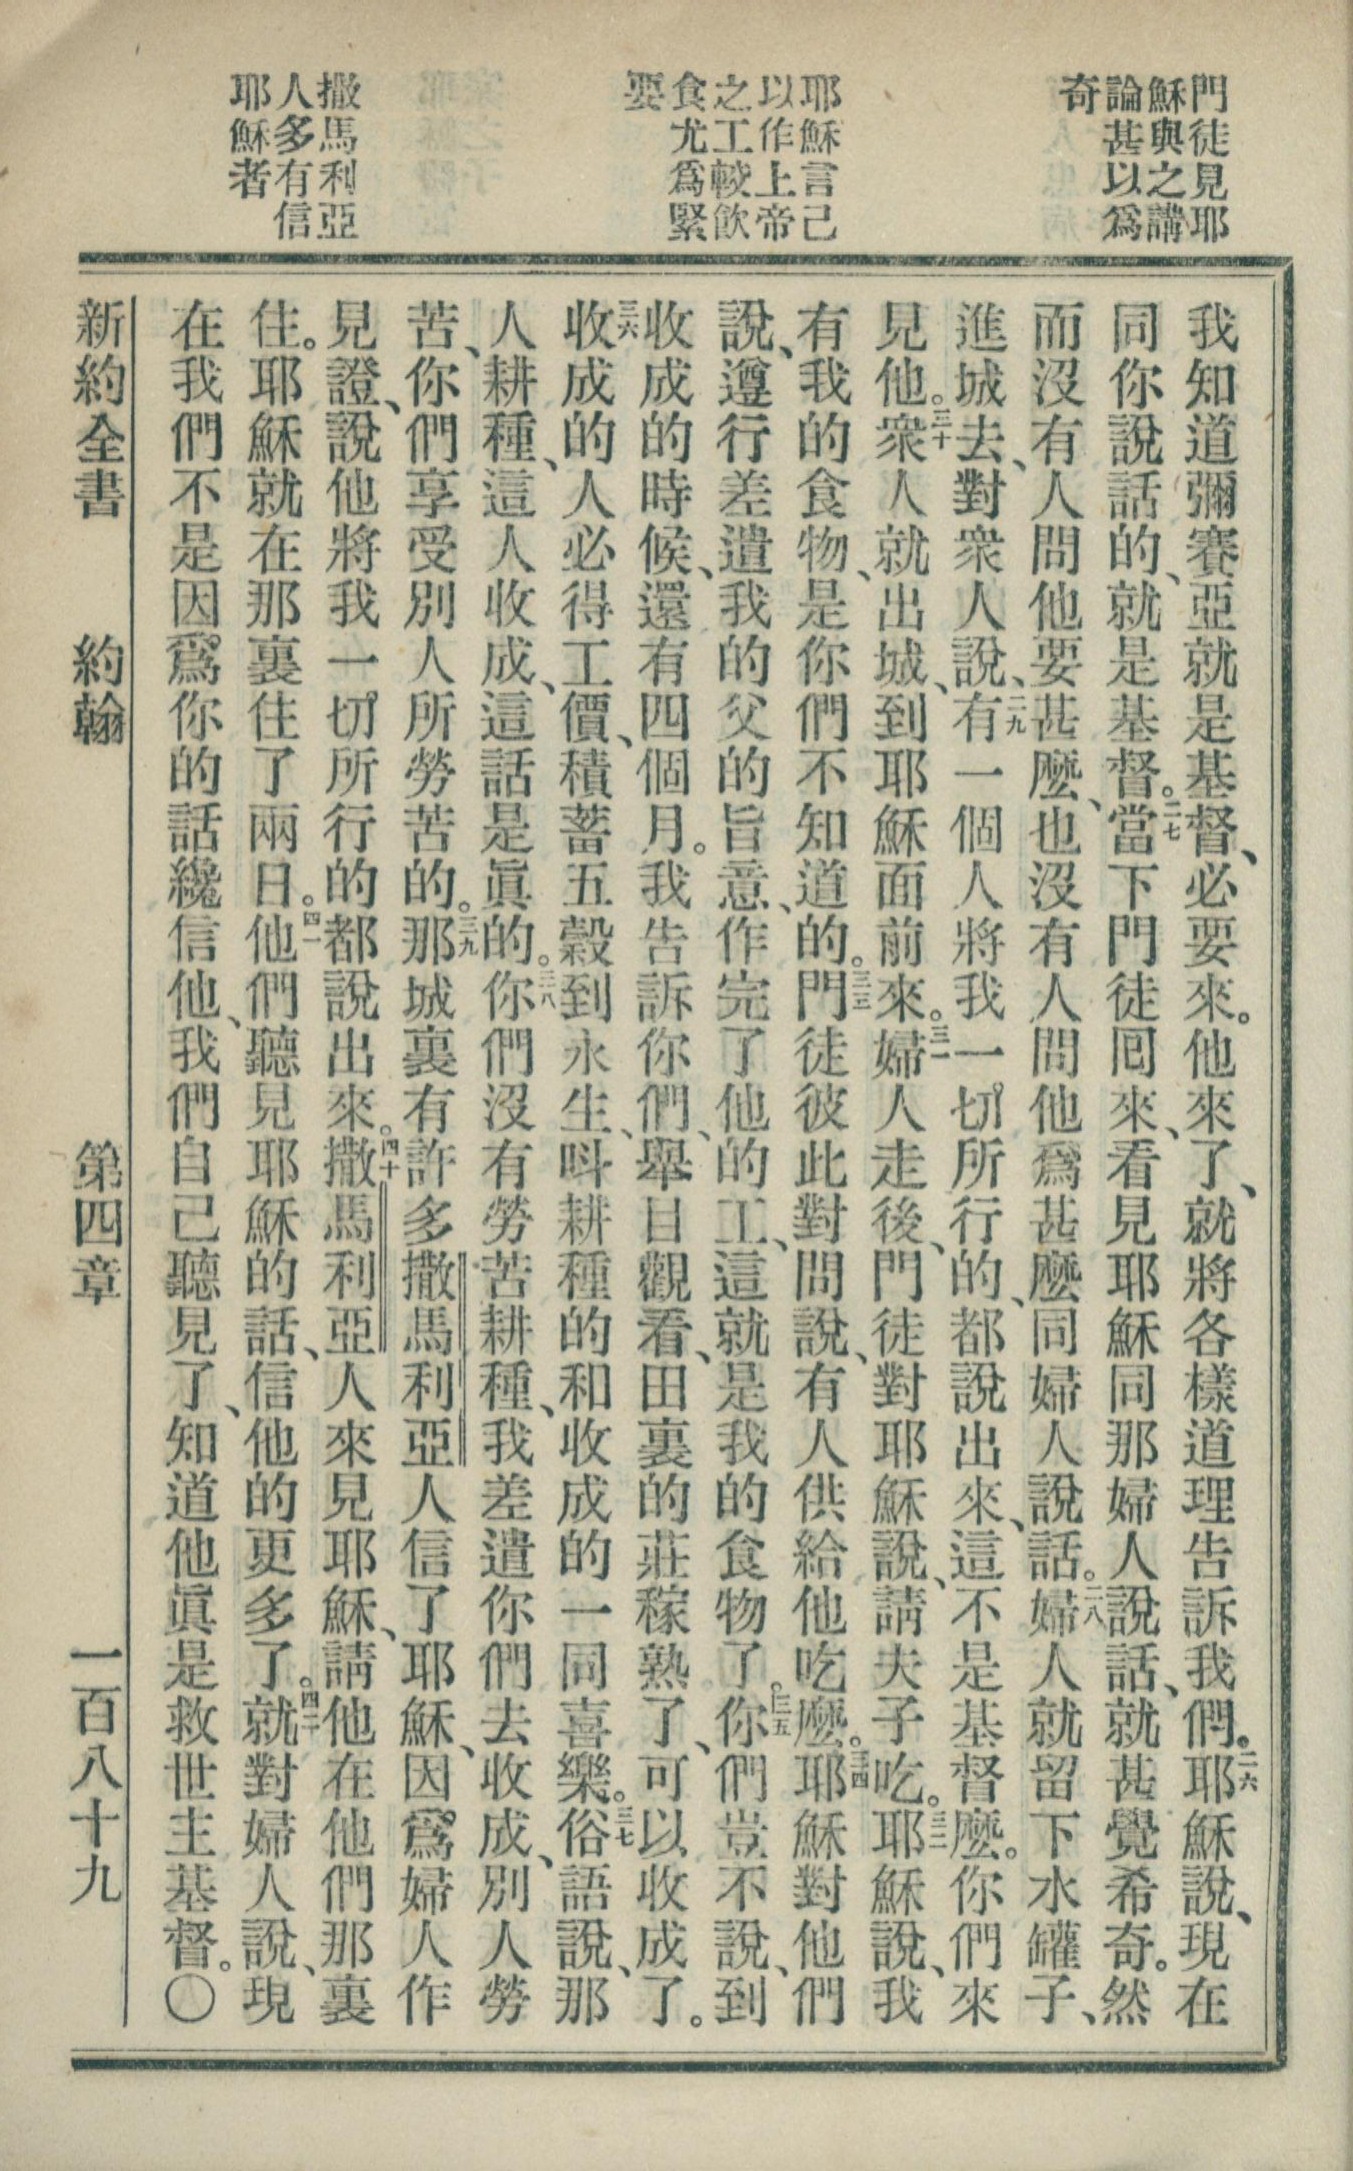 門徒見耶
穌與之講
論甚以爲
奇
耶穌言己
以作上帝
之工較飲
食尤爲緊
要
撒馬利亞
人多有信
耶穌者
我知道彌賽亞就是基督、必要來。他來了、就將各樣道理告訴我們。二六耶穌說、現在
同你說話的、就是基督。二七當下門徒囘來、看見耶穌同那婦人說話、就甚覺希奇。然
而沒有人問他要甚麼、也沒有人問他爲甚麼同婦人說話。二八婦人就留下水罐子、
進城去、對衆人說、二九有一個人將我一切所行的、都說出來、這不是基督麼。你們來
見他。三十衆人就出城、到耶穌面前來。三一婦人走後、門徒對耶穌說、請夫子吃。三二耶穌說、我
有我的食物、是你們不知道的。三三門徒彼此對問說、有人供給他吃麼。三四耶穌對他們
說、遵行差遣我的父的旨意、作完了他的工、這就是我的食物了。三五你們豈不說、到
收成的時候、還有四個月。我告訴你們、舉目觀看、田裏的莊稼熟了、可以收成了。
三六收成的人必得工價、積蓄五穀到永生、呌耕種的和收成的一同喜樂。三七俗語說、那
人耕種、這人收成、這話是眞的。三八你們沒有勞苦耕種、我差遣你們去收成、別人勞
苦、你們享受別人所勞苦的。三九那城裏有許多撒馬利亞人信了耶穌、因爲婦人作
見證、說他將我一切所行的都說出來。四十撒馬利亞人來見耶穌、請他在他們那裏
住。耶穌就在那裏住了兩日。四一他們聽見耶穌的話、信他的更多了。四二就對婦人說、現
在我們不是因爲你的話纔信他、我們自己聽見了、知道他眞是救世主基督。〇
新約全書 約翰 第四章 一百八十九